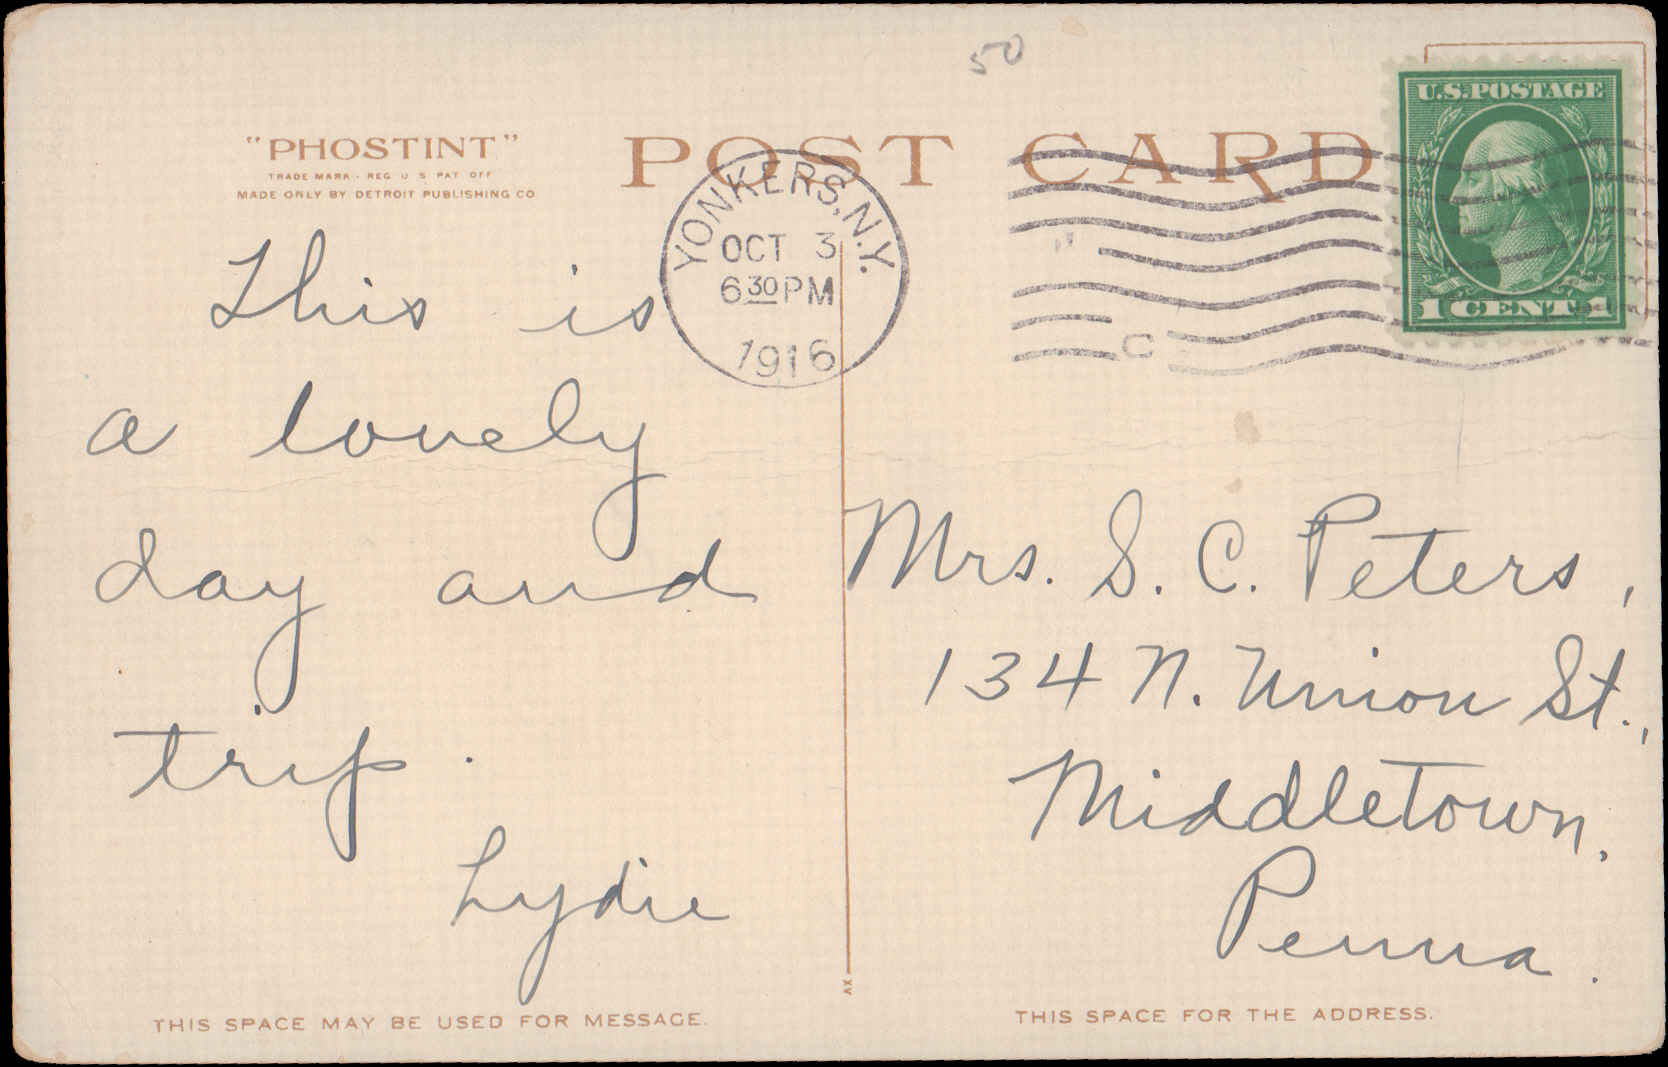 50
"PHOSTINT"
TRADE MARK - REG U S PAT OFF
MADE ONLY BY DETROIT PUBLISHING CO
POST CARD
U.S. POSTAGE
1 CENT 1
YONKERS, N.Y.
OCT 3
6 30 PM
1916
This is
a lovely
day and
trip.
Lydie
Mrs. S. C. Peters,
134 N. Union St.,
Middletown,
Penna.
XV
THIS SPACE MAY BE USED FOR MESSAGE.
THIS SPACE FOR THE ADDRESS.